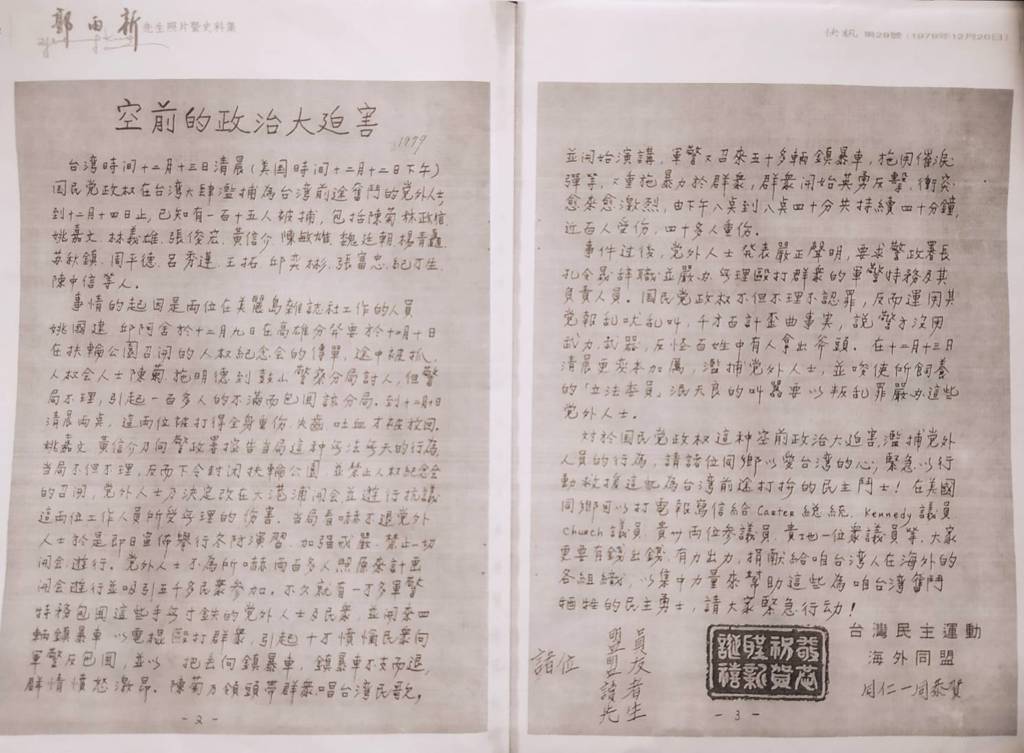 郭雨新先生照片暨史料集
空前的政治大迫害
1979
台湾時间十二月十三日清晨(美国時间十二月十二日下午)
国民党政权在台湾大肆濫捕為台湾前途奮鬥的党外人士,
到十二月十四日止,已知有一百十五人被捕,包括陳菊.林政
姚嘉文.林義雄.張俊宏.黃信介.陳敏雄.魏廷朝.楊青矗.
苏秋鎮.周平德.呂秀蓮.王拓.邱奕彬.張富忠.紀万生.
陳中信等人。
事情的起因是兩位在美麗島雜誌社工作的人員
姚國建.邱阿舍於十二月九日在高雄分發要於十二月十日
在扶輪公園召開的人权紀念会的傳單,途中被抓.
人权会人士陳菊.施明德到鼓山警察分局討人,但警
局不理,引起一百多人的不滿而包圍該分局.到十二月十日
清晨兩点,這兩位被打得全身重伤.失齒.吐血才被放回.
姚嘉文.黃信介乃向警政署控告当局這种無法無天的行為,
当局不但不理,反而下令封闭扶輪公園,並禁止人权紀念会
的召開,党外人士乃決定改在大港浦闹会並遊行抗議
這兩位工作人員所受無理的伤害。当局看嚇不退党外
人士於是即日宣佈舉行冬防演習.加強戒嚴.禁止一切
闹会.遊行。党外人士不為所嚇,两百多人照原來計畫
闹会遊行並吸引五千多民衆参加.不久就有一千多軍警
特務包圍這些手無寸鉄的党外人士及民衆,並開來四
輛鎮暴車.以電棍毆打群衆,引起十万憤慨民衆向
軍警反包圍,並以 把丢向鎮暴車,鎮暴車不支而退,
群情憤怒激昂。陳菊乃領頭帶群衆唱台湾民歌,
- 2 -
快訊 第29號(1979年12月20日)
並闹始演講,軍警又召來五十多輛鎮暴車,施用催淚
彈等,又重施暴力於群衆,群衆開始英勇反擊,衝突
愈來愈激烈,由下午八点到八点四十分共持續四十分鐘,
近百人受伤,四十多人重伤。
事件过後,党外人士發表嚴正聲明,要求警政署長
孔令晟辞職並嚴办無理毆打群衆的軍警特務及其
負責人員。国民党政权不但不理不認罪,反而運用其
党報乱吠乱叫,千方百計歪曲事实,説警方没用
武力.武器,反怪百姓中有人拿出斧頭。在十二月十三日
清晨更变本加厲,濫捕党外人士,並唆使所飼養
的「立法委員」泯天良的叫囂要以叛乱罪嚴办這些
党外人士。
对於国民党政权這种空前政治大迫害,濫捕党外
人員的行為,請諸位同鄉以愛台湾的心,緊急以行
動救援這些為台湾前途打拚的民主鬥士!在美國
同鄉可以打電報寫信給Carter總統,Kennedy議員
Church議員,貴州兩位参議員,貴地一位衆議員等,大家
更要有錢出錢,有力出力,捐献給咱台湾人在海外的
各組織,以集中力量來幫助這些為咱台湾奮鬥
牺牲的民主勇士,請大家緊急行动!
台灣民主運動
海外同盟
同仁一同恭賀
敬祝賀
誕禧
諸位
盟員
盟友
讀者
先生
- 3 -